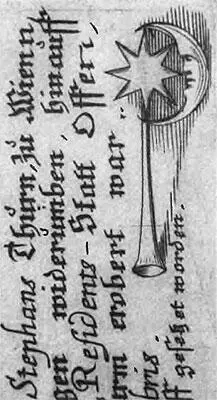 Stephans Thurn, zu Wienn
gen widerumben, hinauff
Residents-Statt Offen,
urm erobert war.
bris.
ff gesetzet worden.